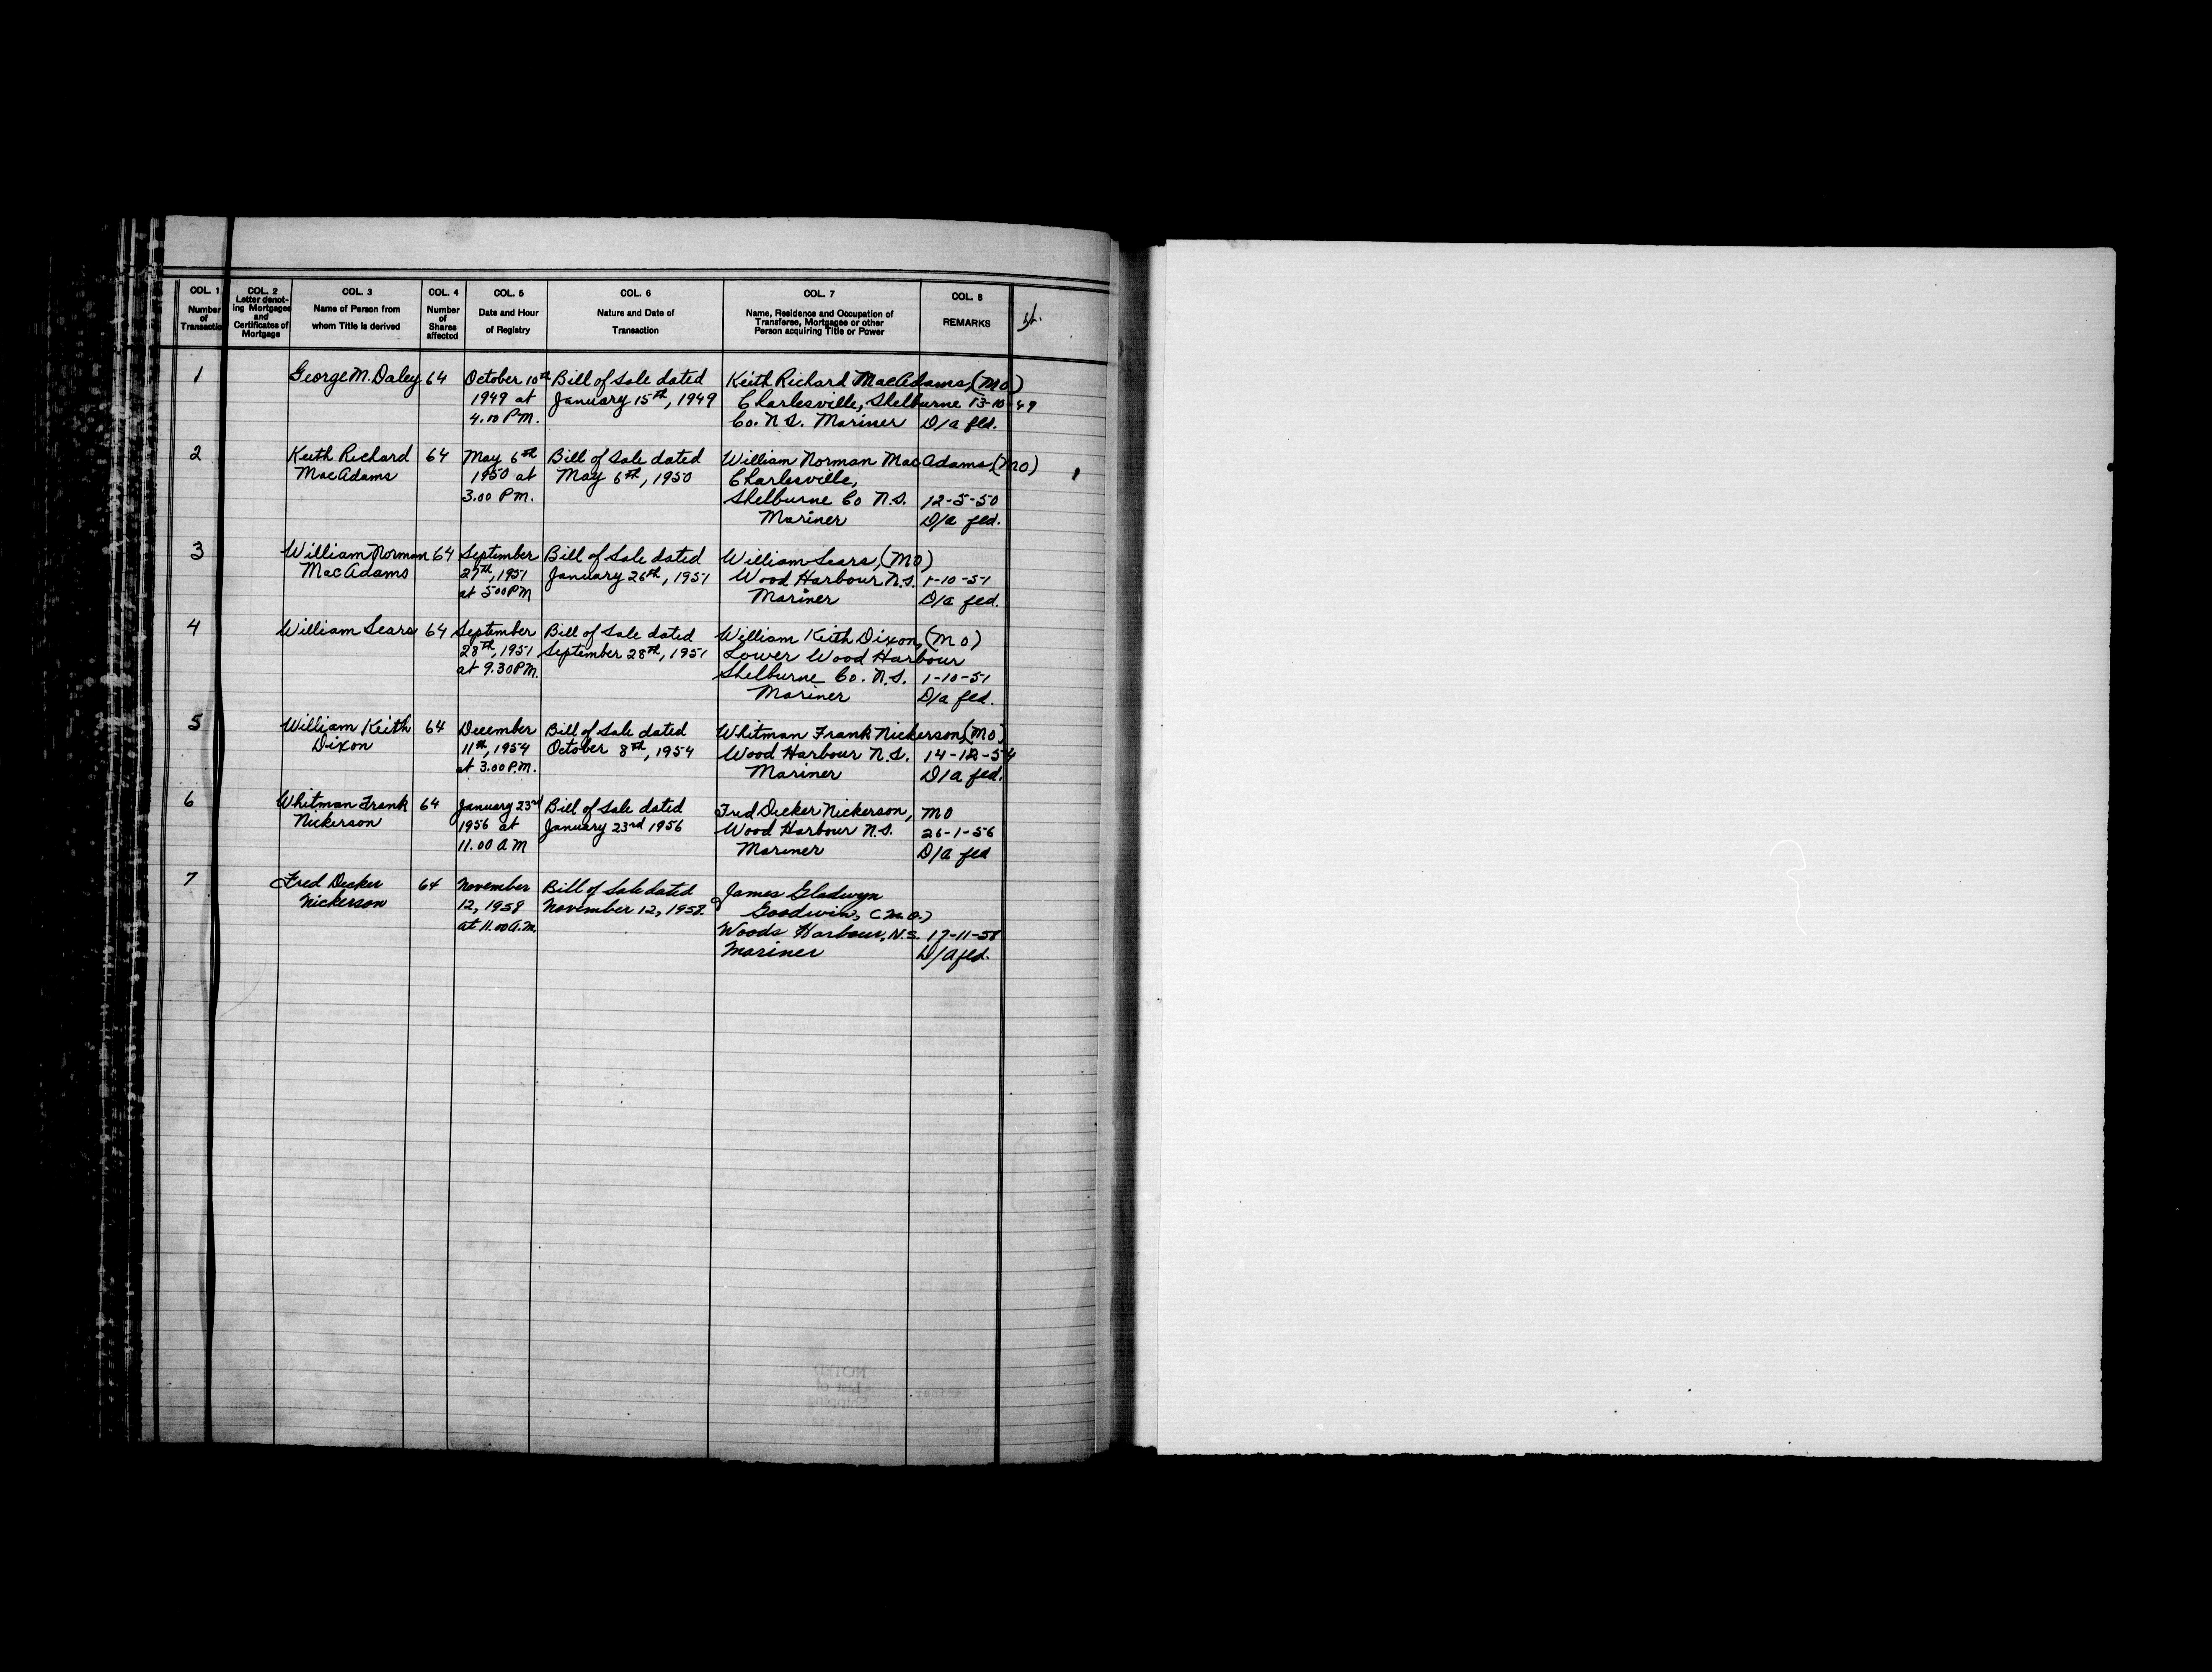 COL. 1 COL. 2 COL. 3 COL. 4 COL. 5 COL. 6 COL. 7 COL. 8
Number of Transactio
Letter denot-ing Mortgages and Certificates of Mortgage
Name of Person from whom Title is derived
Number of Shares affected
Date and Hour of Registry
Nature and Date of Transaction
Name, Residence and Occupation of Transferee, Mortgagee or other Person acquiring Title or Power
REMARKS
1 George M. Daley 64 October 10th Bill of Sale dated Keith Richard MacAdams, (MO)
1949 at January 15th, 1949 Charlesville, Shelburne 13-10-49
4.10 P.M. Co. N.S. Mariner D/a fld.
2 Keith Richard 64 May 6th Bill of Sale dated William Norman MacAdams, (MO)
MacAdams 1950 at May 6th, 1950 Charlesville,
3.00 P.M. Shelburne Co N.S. 12-5-50
Mariner D/a fed.
3 William Norman 64 September Bill of Sale dated William Sears, (MO)
MacAdams 27th, 1951 January 26th, 1951 Wood Harbour N.S. 1-10-51
at 5.00 PM Mariner D/a fed.
4 William Sears 64 September Bill of Sale dated William Keith Dixon, (MO)
28th, 1951 September 28th, 1951 Lower Wood Harbour
at 9.30 P.M. Shelburne Co. N.S. 1-10-51
Mariner D/a fed.
5 William Keith 64 December Bill of Sale dated Whitman Frank Nickerson, (MO)
Dixon 11th, 1954 October 8th, 1954 Wood Harbour N.S. 14-12-54
at 3.00 P.M. Mariner D/a fed.
6 Whitman Frank 64 January 23rd Bill of Sale dated Fred Decker Nickerson, MO
Nickerson 1956 at January 23rd 1956 Wood Harbour N.S. 26-1-56
11.00 A M Mariner D/a fed
7 Fred Decker 64 November Bill of Sale dated James Gladwyn
Nickerson 12, 1958 November 12, 1958. Goodwin, (M.O.)
at 11.00 A.M. Woods Harbour, N.S. 17-11-58
Mariner D/A fed.